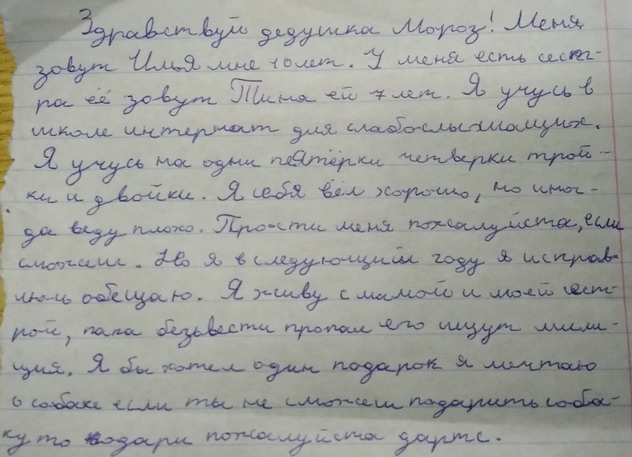 Здравствуй дедушка Мороз! Меня
зовут Илья мне 10 лет. У меня есть сест-
ра её зовут Тина ей 7 лет. Я учусь в
школе интернат для слабослышащих.
Я учусь на одни пятёрки четверки трой-
ки и двойки. Я себя вёл хорошо, но иног-
да веду плохо. Прости меня пожалуйста, если
сможеш. Но я в следующий году я исправ-
люсь обещаю. Я живу с мамой и моей сест-
рой, папа безвести пропал его ищут мили-
ция. Я бы хотел один подарок я мечтаю
о собаке если ты не сможеш подарить соба-
ку то подари пожалуйста дартс.